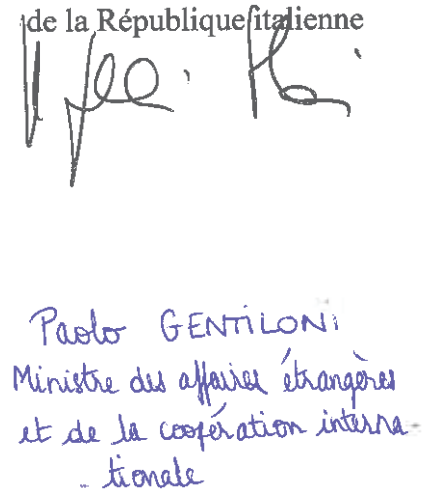 de la République italienne
Paolo GENTILONI
Ministre des affaires étrangères
et de la coopération interna-
- tionale